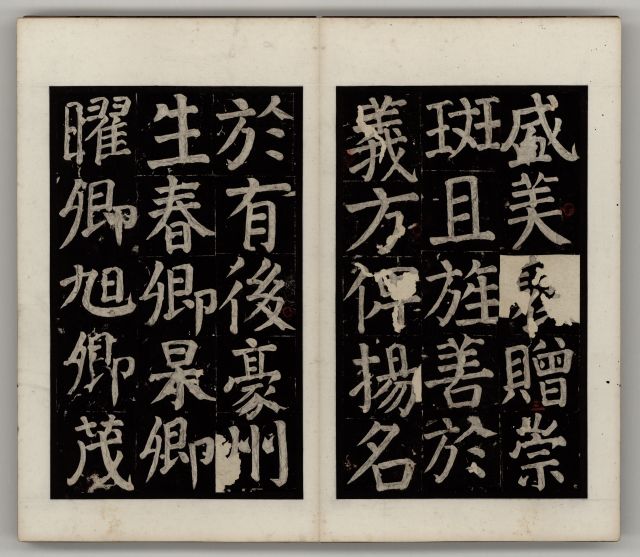 盛美贈崇
斑且旌善於
義方俾揚名
於有後豪州
生春卿杲卿
曜卿旭卿茂